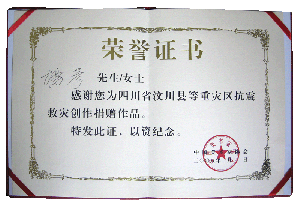 荣誉证书
先生/女士
感谢您为四川省汶川县等重灾区抗震
救灾创作捐赠作品。
特发此证，以资纪念。